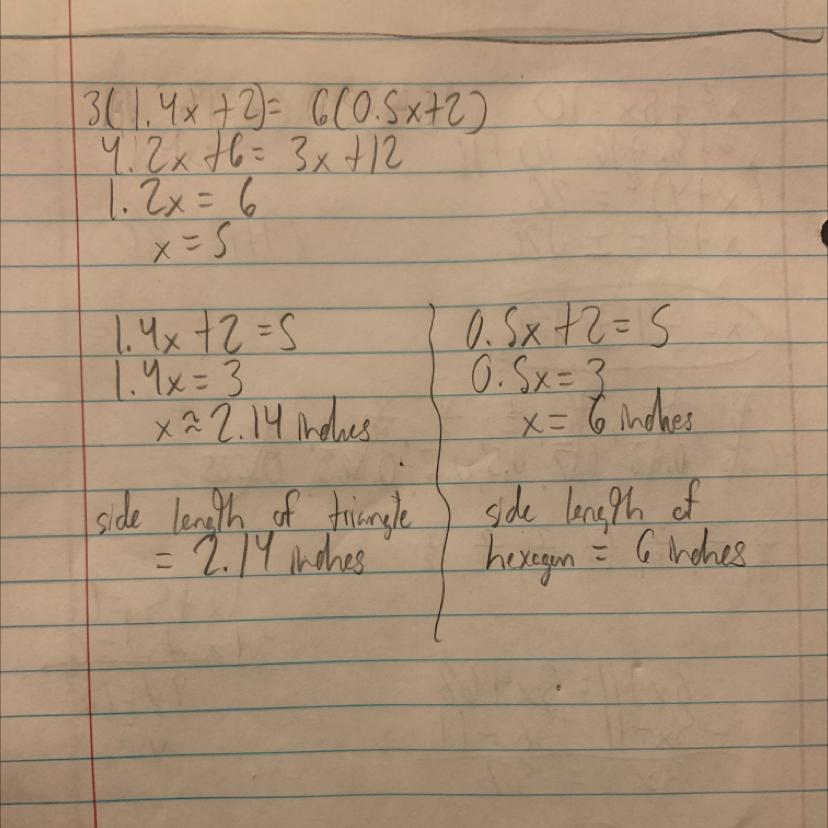 3(1.4x+2)= 6(0.5x+2)
4.2x+6= 3x+12
1.2x = 6
x=5
1.4x+2=5
1.4x=3
x≈2.14 inches
side length of triangle
= 2.14 inches
0.5x+2=5
0.5x=3
x= 6 inches
side length of
hexagon = 6 inches